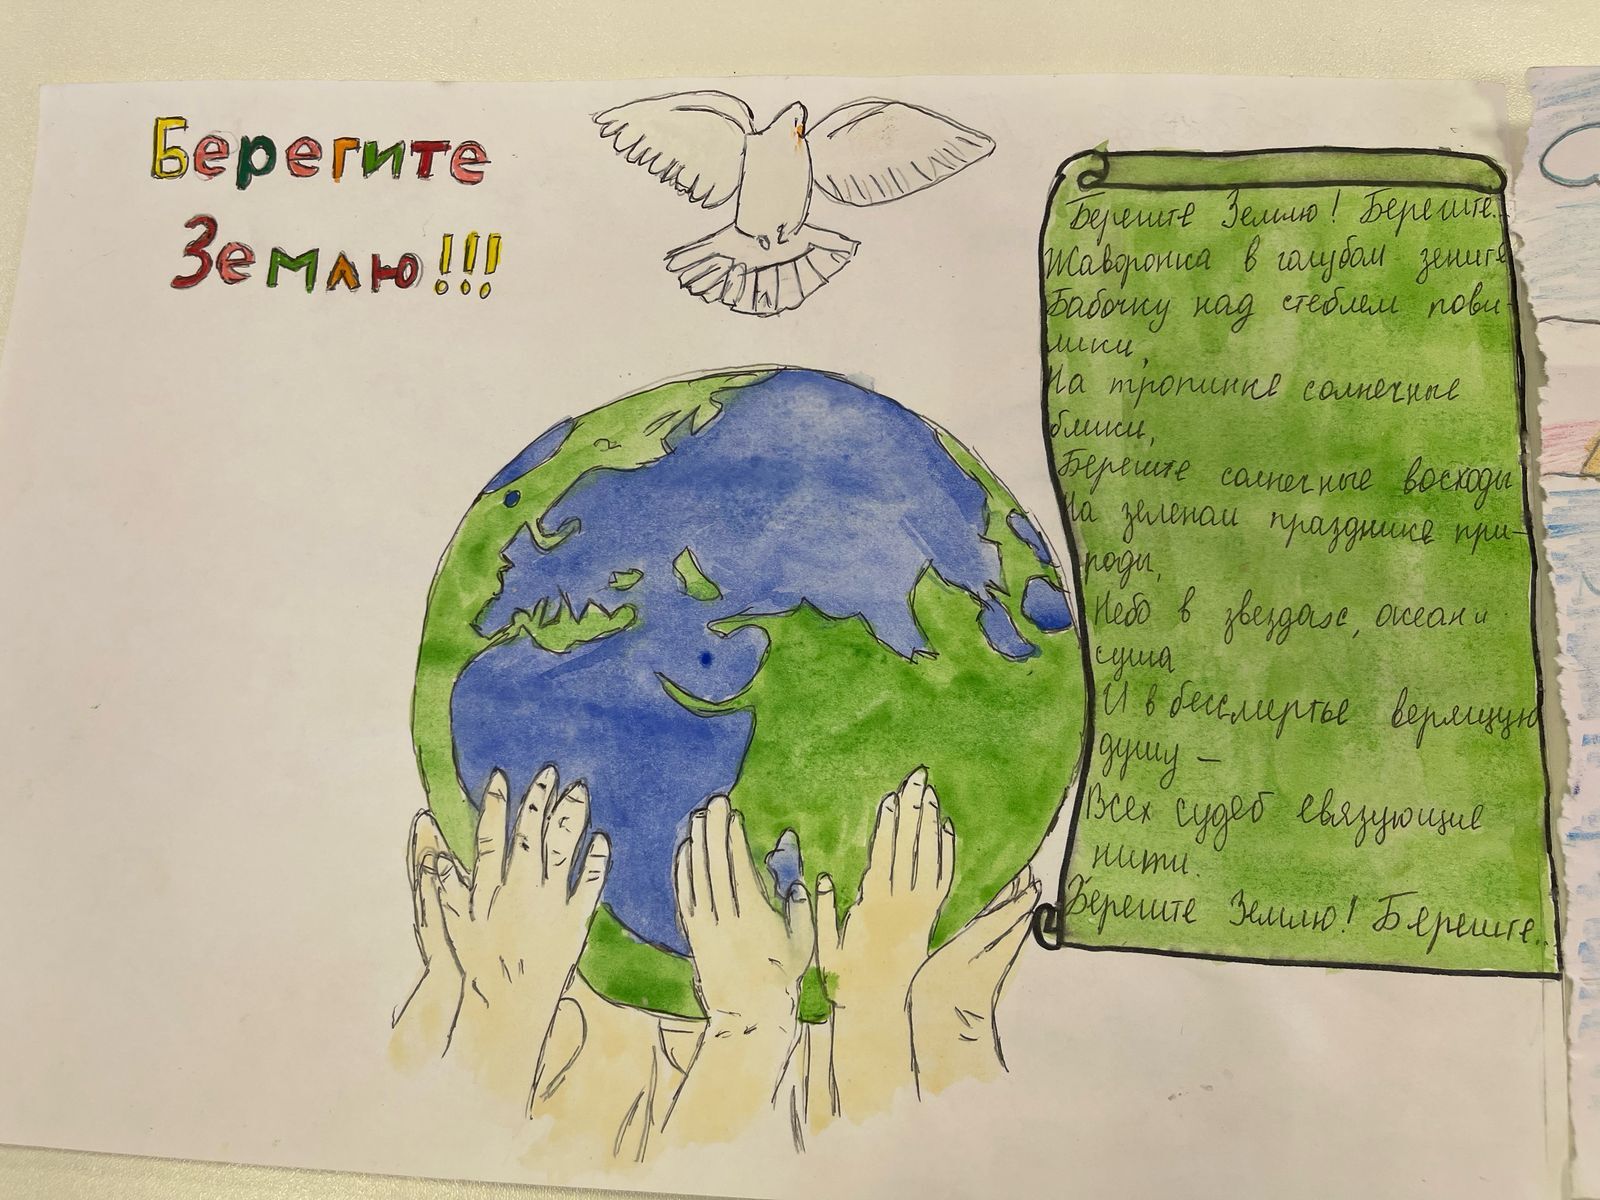 Берегите
Землю!!!
Берегите Землю! Берегите...
Жаворонка в голубом зените
Бабочку над стеблем пови-
лики,
На тропинке солнечные
блики,
Берегите солнечные восходы
На зеленом празднике при-
роды,
Небо в звездах, океан и
суша
И в бессмертье верящую
душу –
Всех судеб связующие
нити.
Берегите Землю! Берегите...